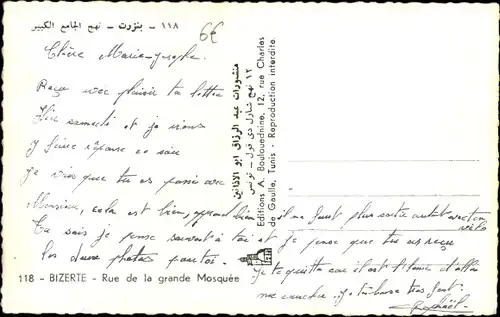 ١١٨ - بنزرت - نهج الجامع الكبير
6€
Chère Marie-Josephe.
Reçu avec plaisir ta lettre
Hier samedi et je viens
y faire réponse ce soir
je vois que tu es passé avec
Monsieur, cela est bien, apprend bien il ne faut plus sortir autant
Tu sais je pense souvent à toi et je pense que tu as reçu
les deux photos
Je te quitte car il est l'heure d'aller
me coucher. Je t'embrasse très fort.
Raphaël.
منشورات عبد الرزاق ابو الاذانين
١٢ نهج شارل دي قول - تونس
Editions A. Boulouednine, 12, rue Charles
de Gaulle, Tunis - Reproduction interdite.
118 - BIZERTE - Rue de la grande Mosquée